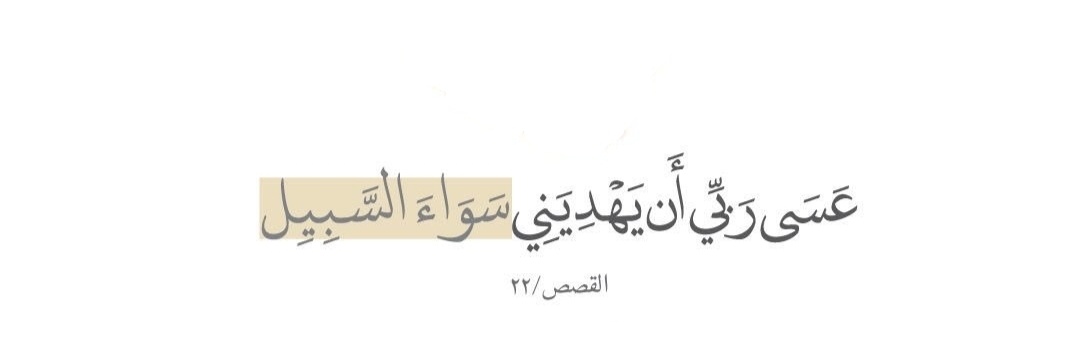 عَسَى رَبِّي أَن يَهْدِيَنِي سَوَاءَ السَّبِيلِ
القصص/٢٢